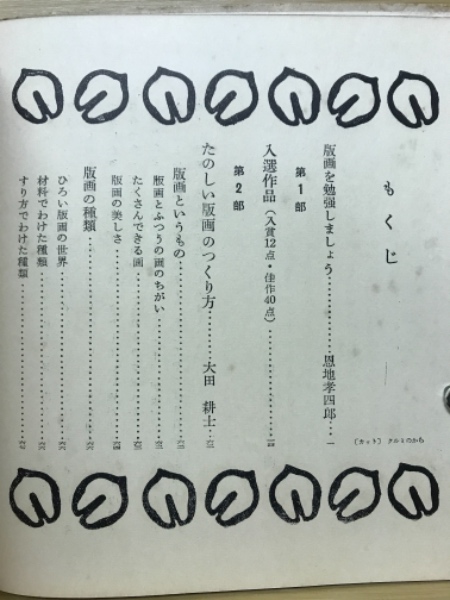 もくじ
〔カット〕 クルミのから
版画を勉強しましょう……………恩地孝四郎…一
第1部
入選作品（入賞12点・佳作40点）……………
第2部
たのしい版画のつくり方………大田 耕士…
版画というもの……………
版画とふつうの画のちがい……………
たくさんできる画……………
版画の美しさ……………
版画の種類……………
ひろい版画の世界……………
材料でわけた種類……………
すり方でわけた種類……………